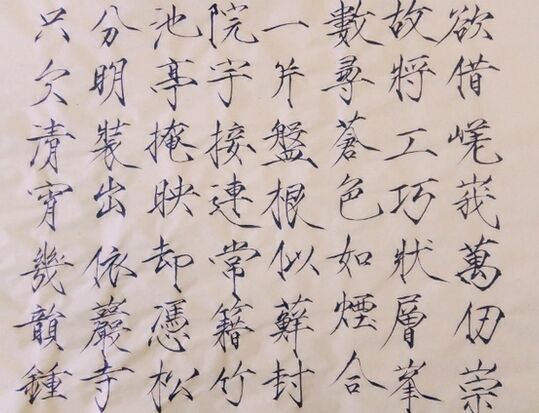 欲借嵯峨萬仞崇
故將工巧狀層峯
數尋蒼色如煙合
一片盤根似蘚封
院宇接連常籍竹
池亭掩映却憑松
分明裝出依巖寺
只欠清宵幾韻鍾